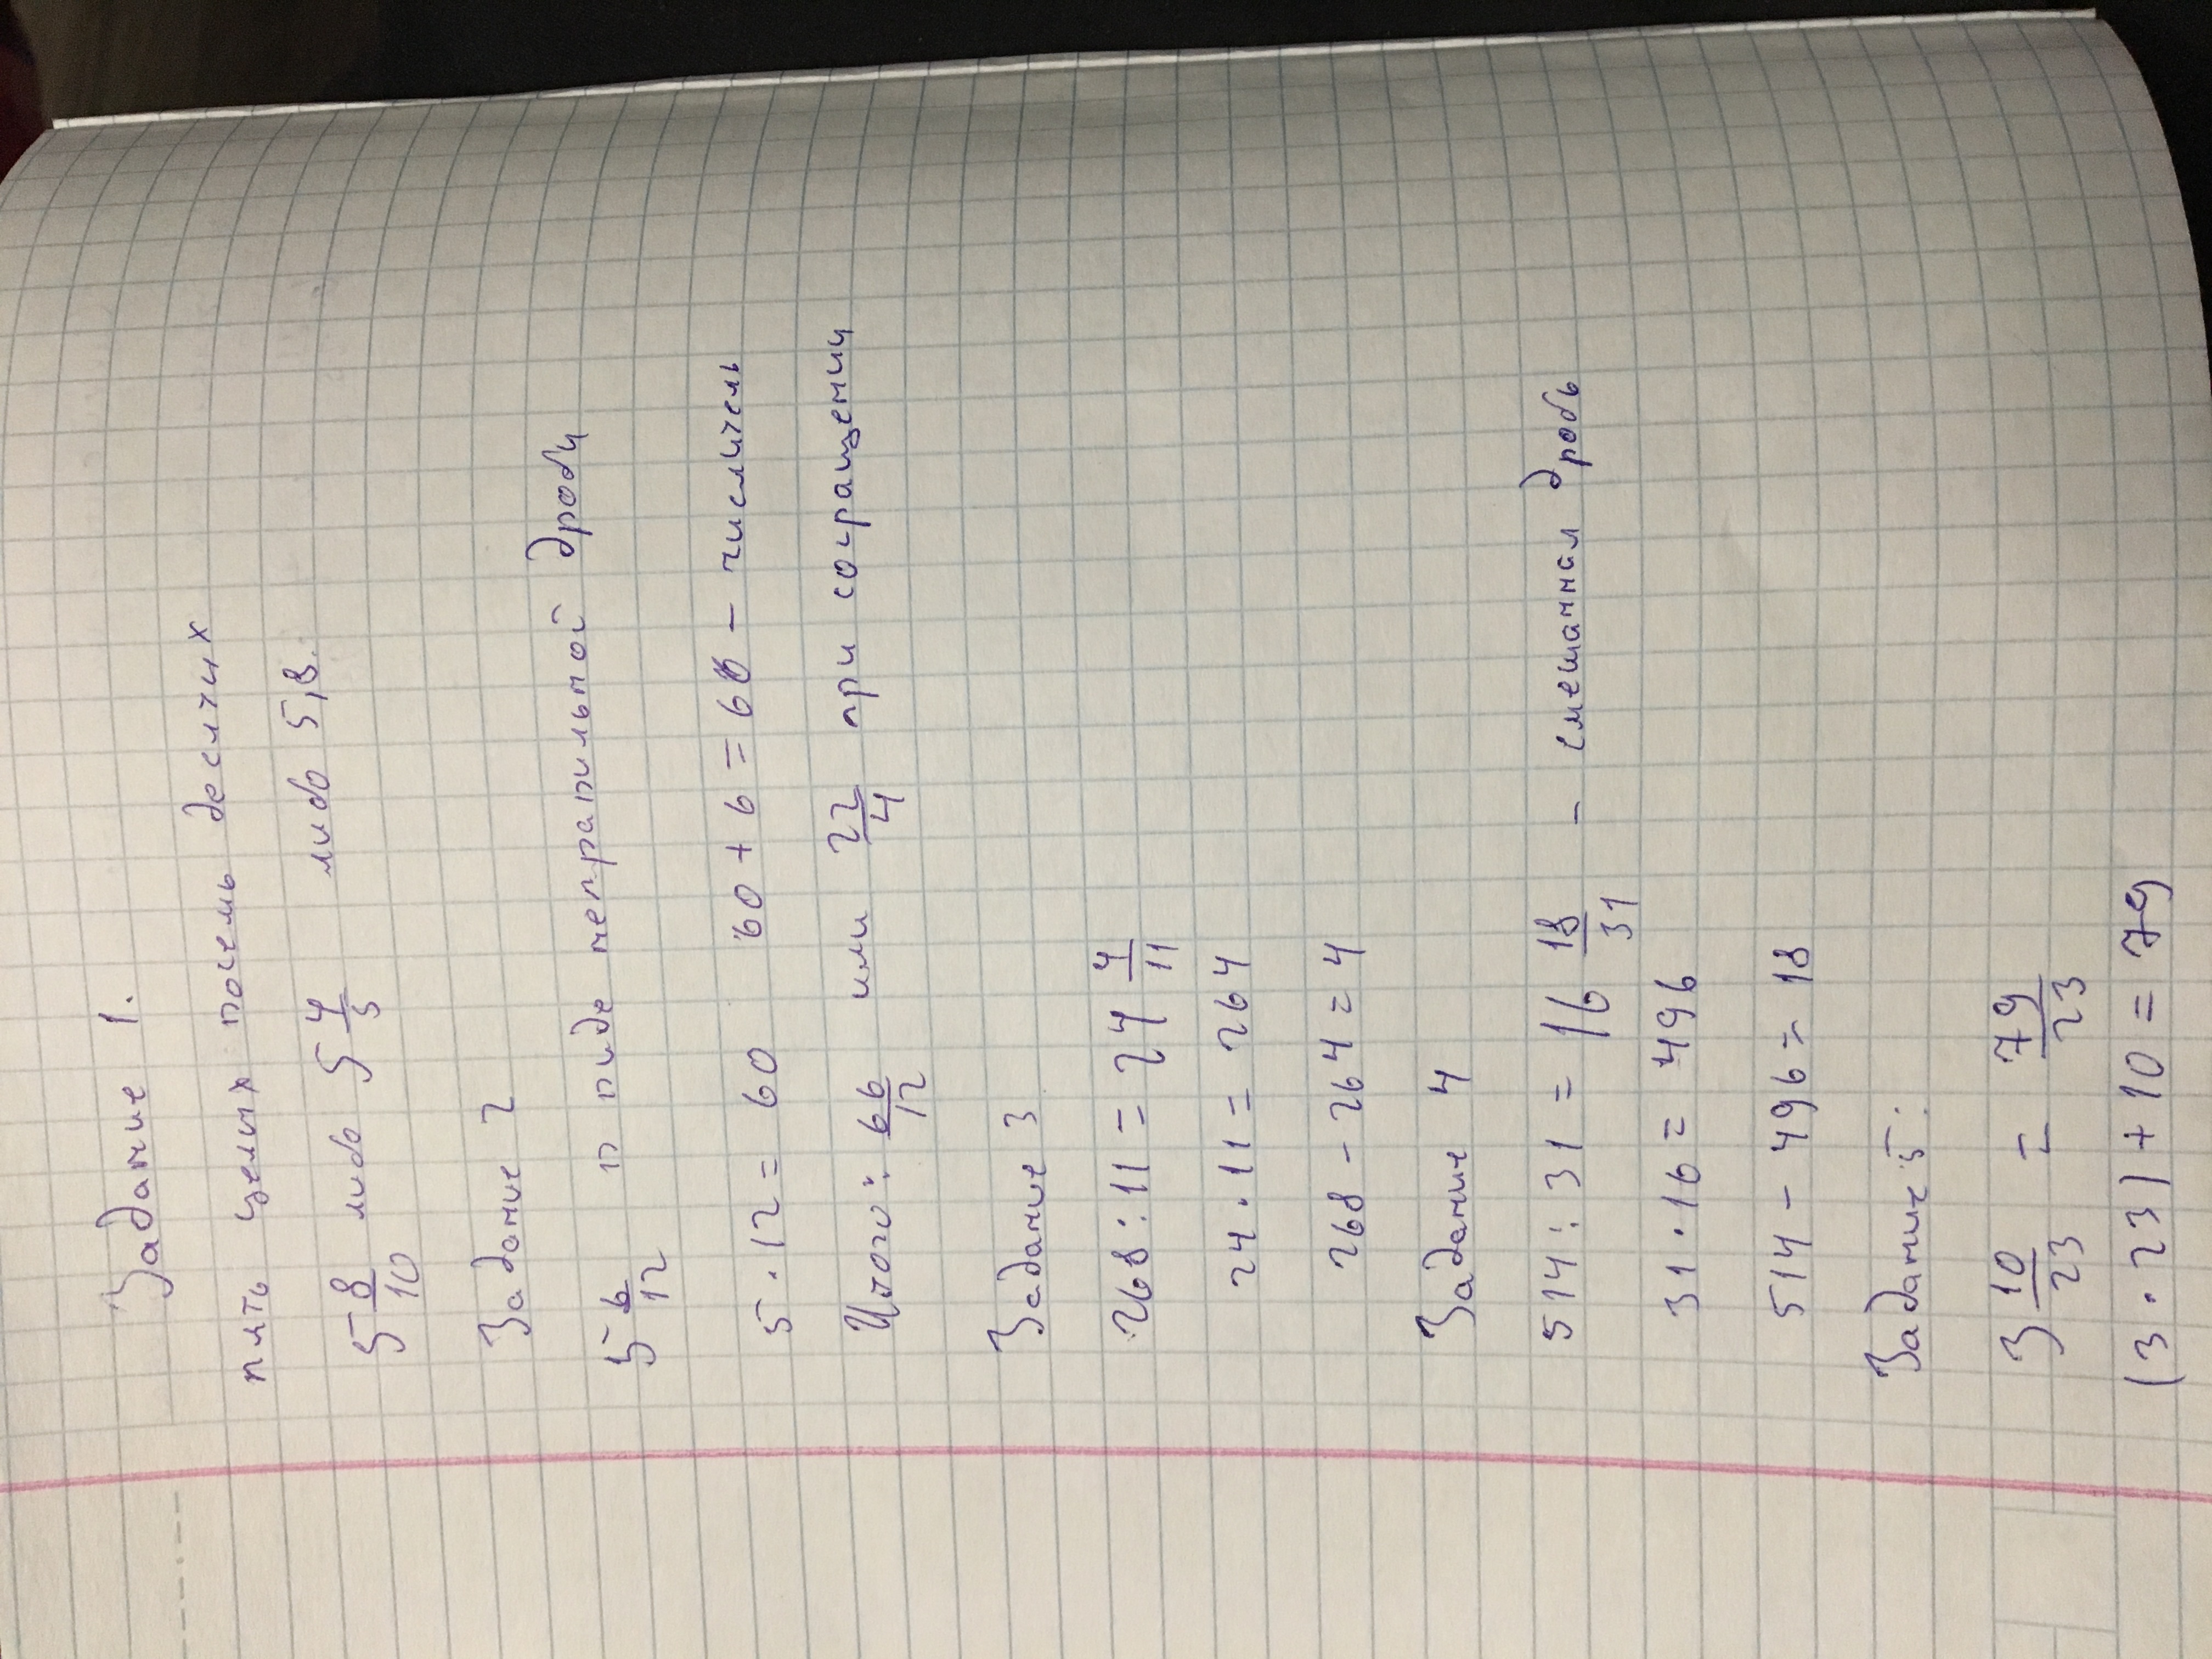 Задание 1.
пять целых восемь десятых
5 8/10 либо 5 4/5 либо 5,8.
Задание 2
5 6/12 в виде неправильной дроби
5 · 12 = 60 60 + 6 = 66 - числитель
Итого: 66/12 или 22/4 при сокращении
Задание 3
268 : 11 = 24 4/11
24 · 11 = 264
268 - 264 = 4
Задание 4
514 : 31 = 16 18/31 - смешанная дробь
31 · 16 = 496
514 - 496 = 18
Задание 5:
3 10/23 = 79/23
(3 · 23) + 10 = 79